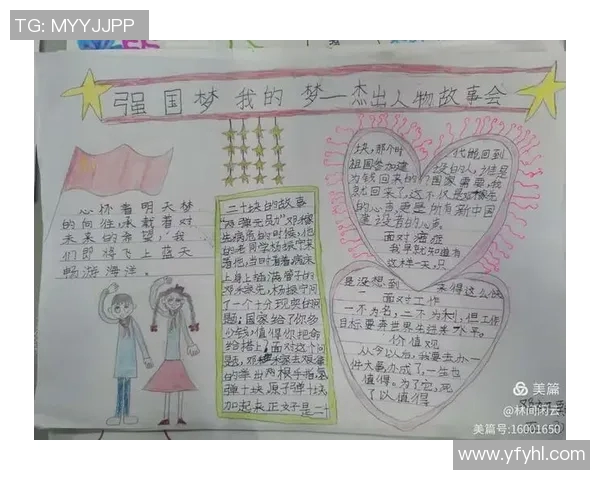 TG: MYYJJPP
强国梦 我的 梦—杰出人物故事会
心怀着明天梦
的向往,承载着对
未来的希望,我
们即将飞上蓝天
畅游海洋。
二十块的故事
"两弹元勋"邓稼先
病危的时候,他
的老同学杨振宁来
看他,当时看着病床
上身上插满管子的
邓稼先,杨振宁问
了一个十分现实的问
题:国家给了你多
少钱,值得你把命
给搭上,面对这个问
题,邓稼先艰难
的举出两根手指氢
弹十块,原子弹十块
加起来正好是二
块,那个时代能回到
祖国参加建设的人,谁是
为钱回来的?国家需要,我
就回来了,这不仅是邓稼先
的心声更是所有新中国
建设者的心声
面对海症
我早就知道有
这样一天,只
是没想到 来得这么快
面对工作
一不为名,二不为利,但工作
目标要奔世界先进水平。
价值观
从今以后,我要去办一
件大事,办成了,一生也
值得。为了它,死
了以值得
美篇
@林间闲云
美篇号:16001650
www.yfyhl.com